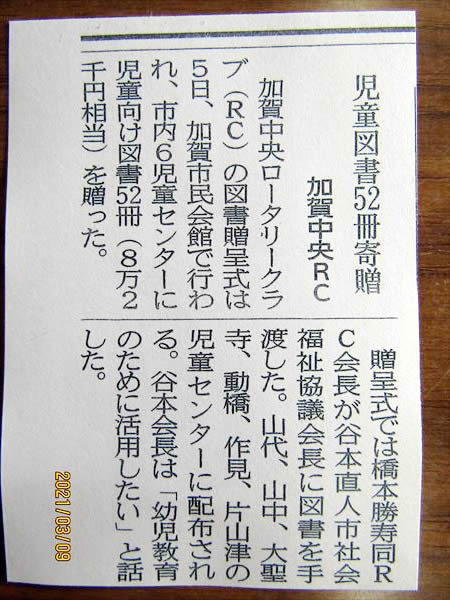 児童図書52冊寄贈
加賀中央RC
加賀中央ロータリークラ
ブ(RC)の図書贈呈式は
5日、加賀市民会館で行わ
れ、市内6児童センターに
児童向け図書52冊(8万2
千円相当)を贈った。
贈呈式では橋本勝寿同R
C会長が谷本直人市社会
福祉協議会長に図書を手
渡した。山代、山中、大聖
寺、動橋、作見、片山津の
児童センターに配布され
る。谷本会長は「幼児教育
のために活用したい」と話
した。
2021/03/09